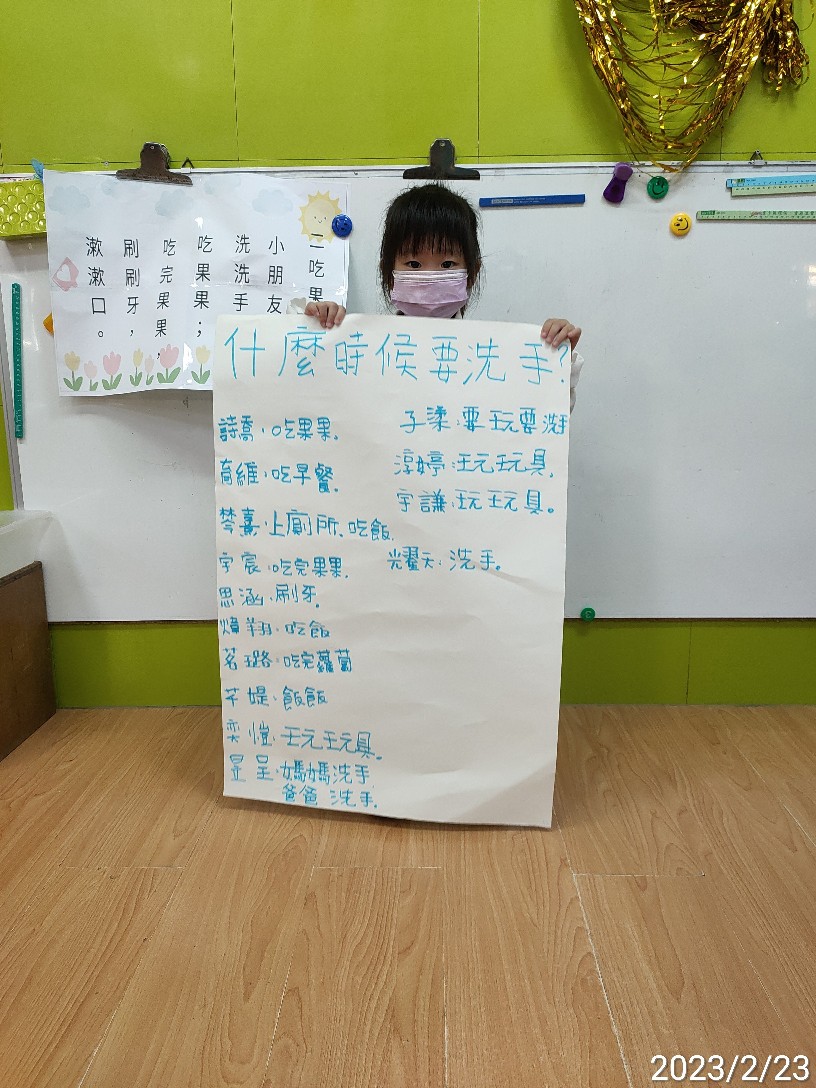 一吃果
小朋友
洗洗手
吃果果；
吃完果果，
刷刷牙，
漱漱口。
什麼時候要洗手？
詩喬：吃果果。
育維：吃早餐。
棽熹：上廁所、吃飯。
宇宸：吃完果果。
思涵：刷牙。
煒翔：吃飯
茗璐：吃完蘿蔔
芊媞：飯飯
奕愷：玩玩具。
昱呈：媽媽洗手
爸爸 洗手。
子潔：要玩要洗手
淳婷：玩玩具。
宇謙：玩玩具。
耀天：洗手。
2023/2/23